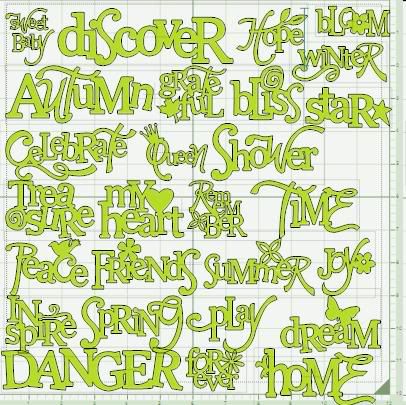 sweet Baby discover Hope bLooM
winter
AuTuMn grateful bliss staR
CeLebRaTe Queen Shower
Treasure my heart RemeMBeR TiME
Peace FRiendS SuMmeR joy
INspire SpRiNg play dreaM
DANGER forever hoME